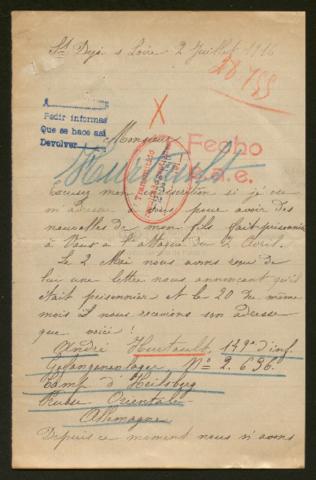 St Dyé s Loire 2 Juillet 1916
28 755
A
Pedir informes
Que se hace así
Devolver
Monsieur
Fecho
s.e.
Hurtault
Excusez mon indiscrétion si j'ose
m'adresser à vous pour avoir des
nouvelles de mon fils fait prisonnier
à Vaux à l'attaque du 2 Avril.
Le 2 Mai nous avons reçu de
lui une lettre nous annonçant qu'il
était prisonnier et le 20 du même
mois il nous donna son adresse
que voici :
André Hurtault, 149e d'inf.
Gefangenenlager No 2.696.
Camp d'Heilsberg
Prusse Orientale
Allemagne
Depuis ce moment nous n'avons